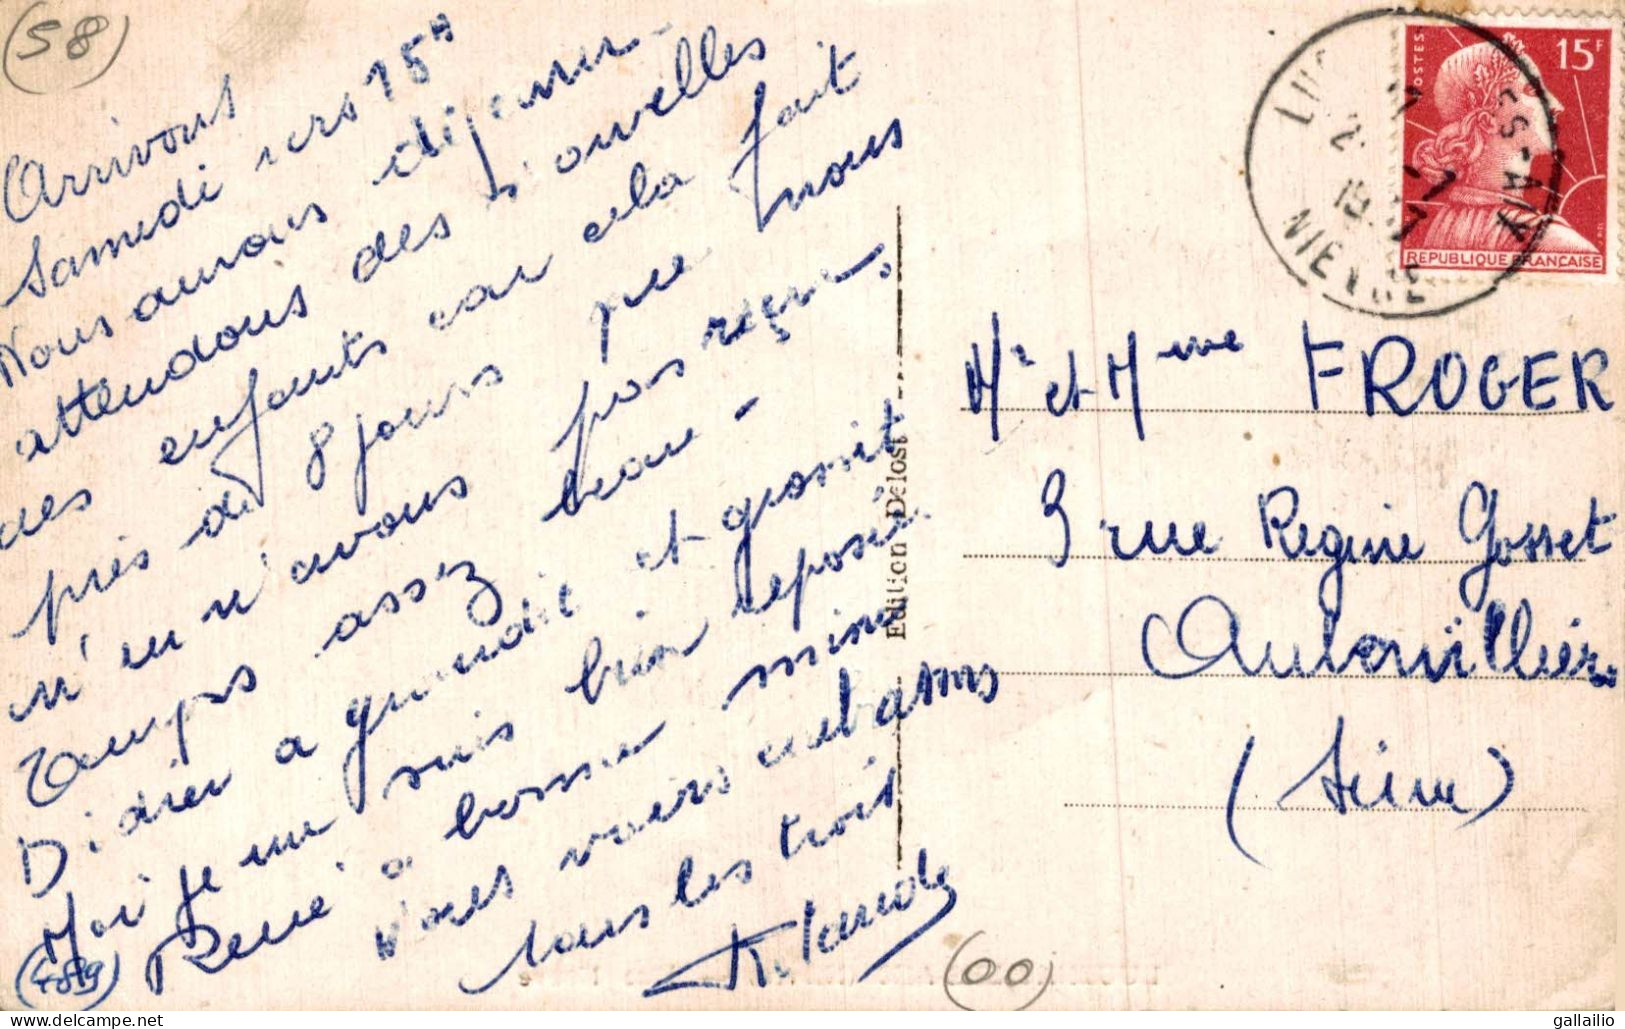 58
Arrivons
Samedi vers 15H
Nous aurons déjeuner -
attendons des nouvelles
des enfants car cela fait
près de 8 jours que nous
n'en n'avons pas reçu.
Temps assez beau -
Didier a grandit et grossit
Moi je me suis bien reposée.
René a bonne mine
Nous vous embrassons
tous les trois
489
00
Edition Delost
15F
POSTES
REPUBLIQUE FRANÇAISE
LES-AIX
NIEVRE
Mr et Mme FROGER
3 rue Regine Gosset
Aubervilliers
(Seine)
gallailio